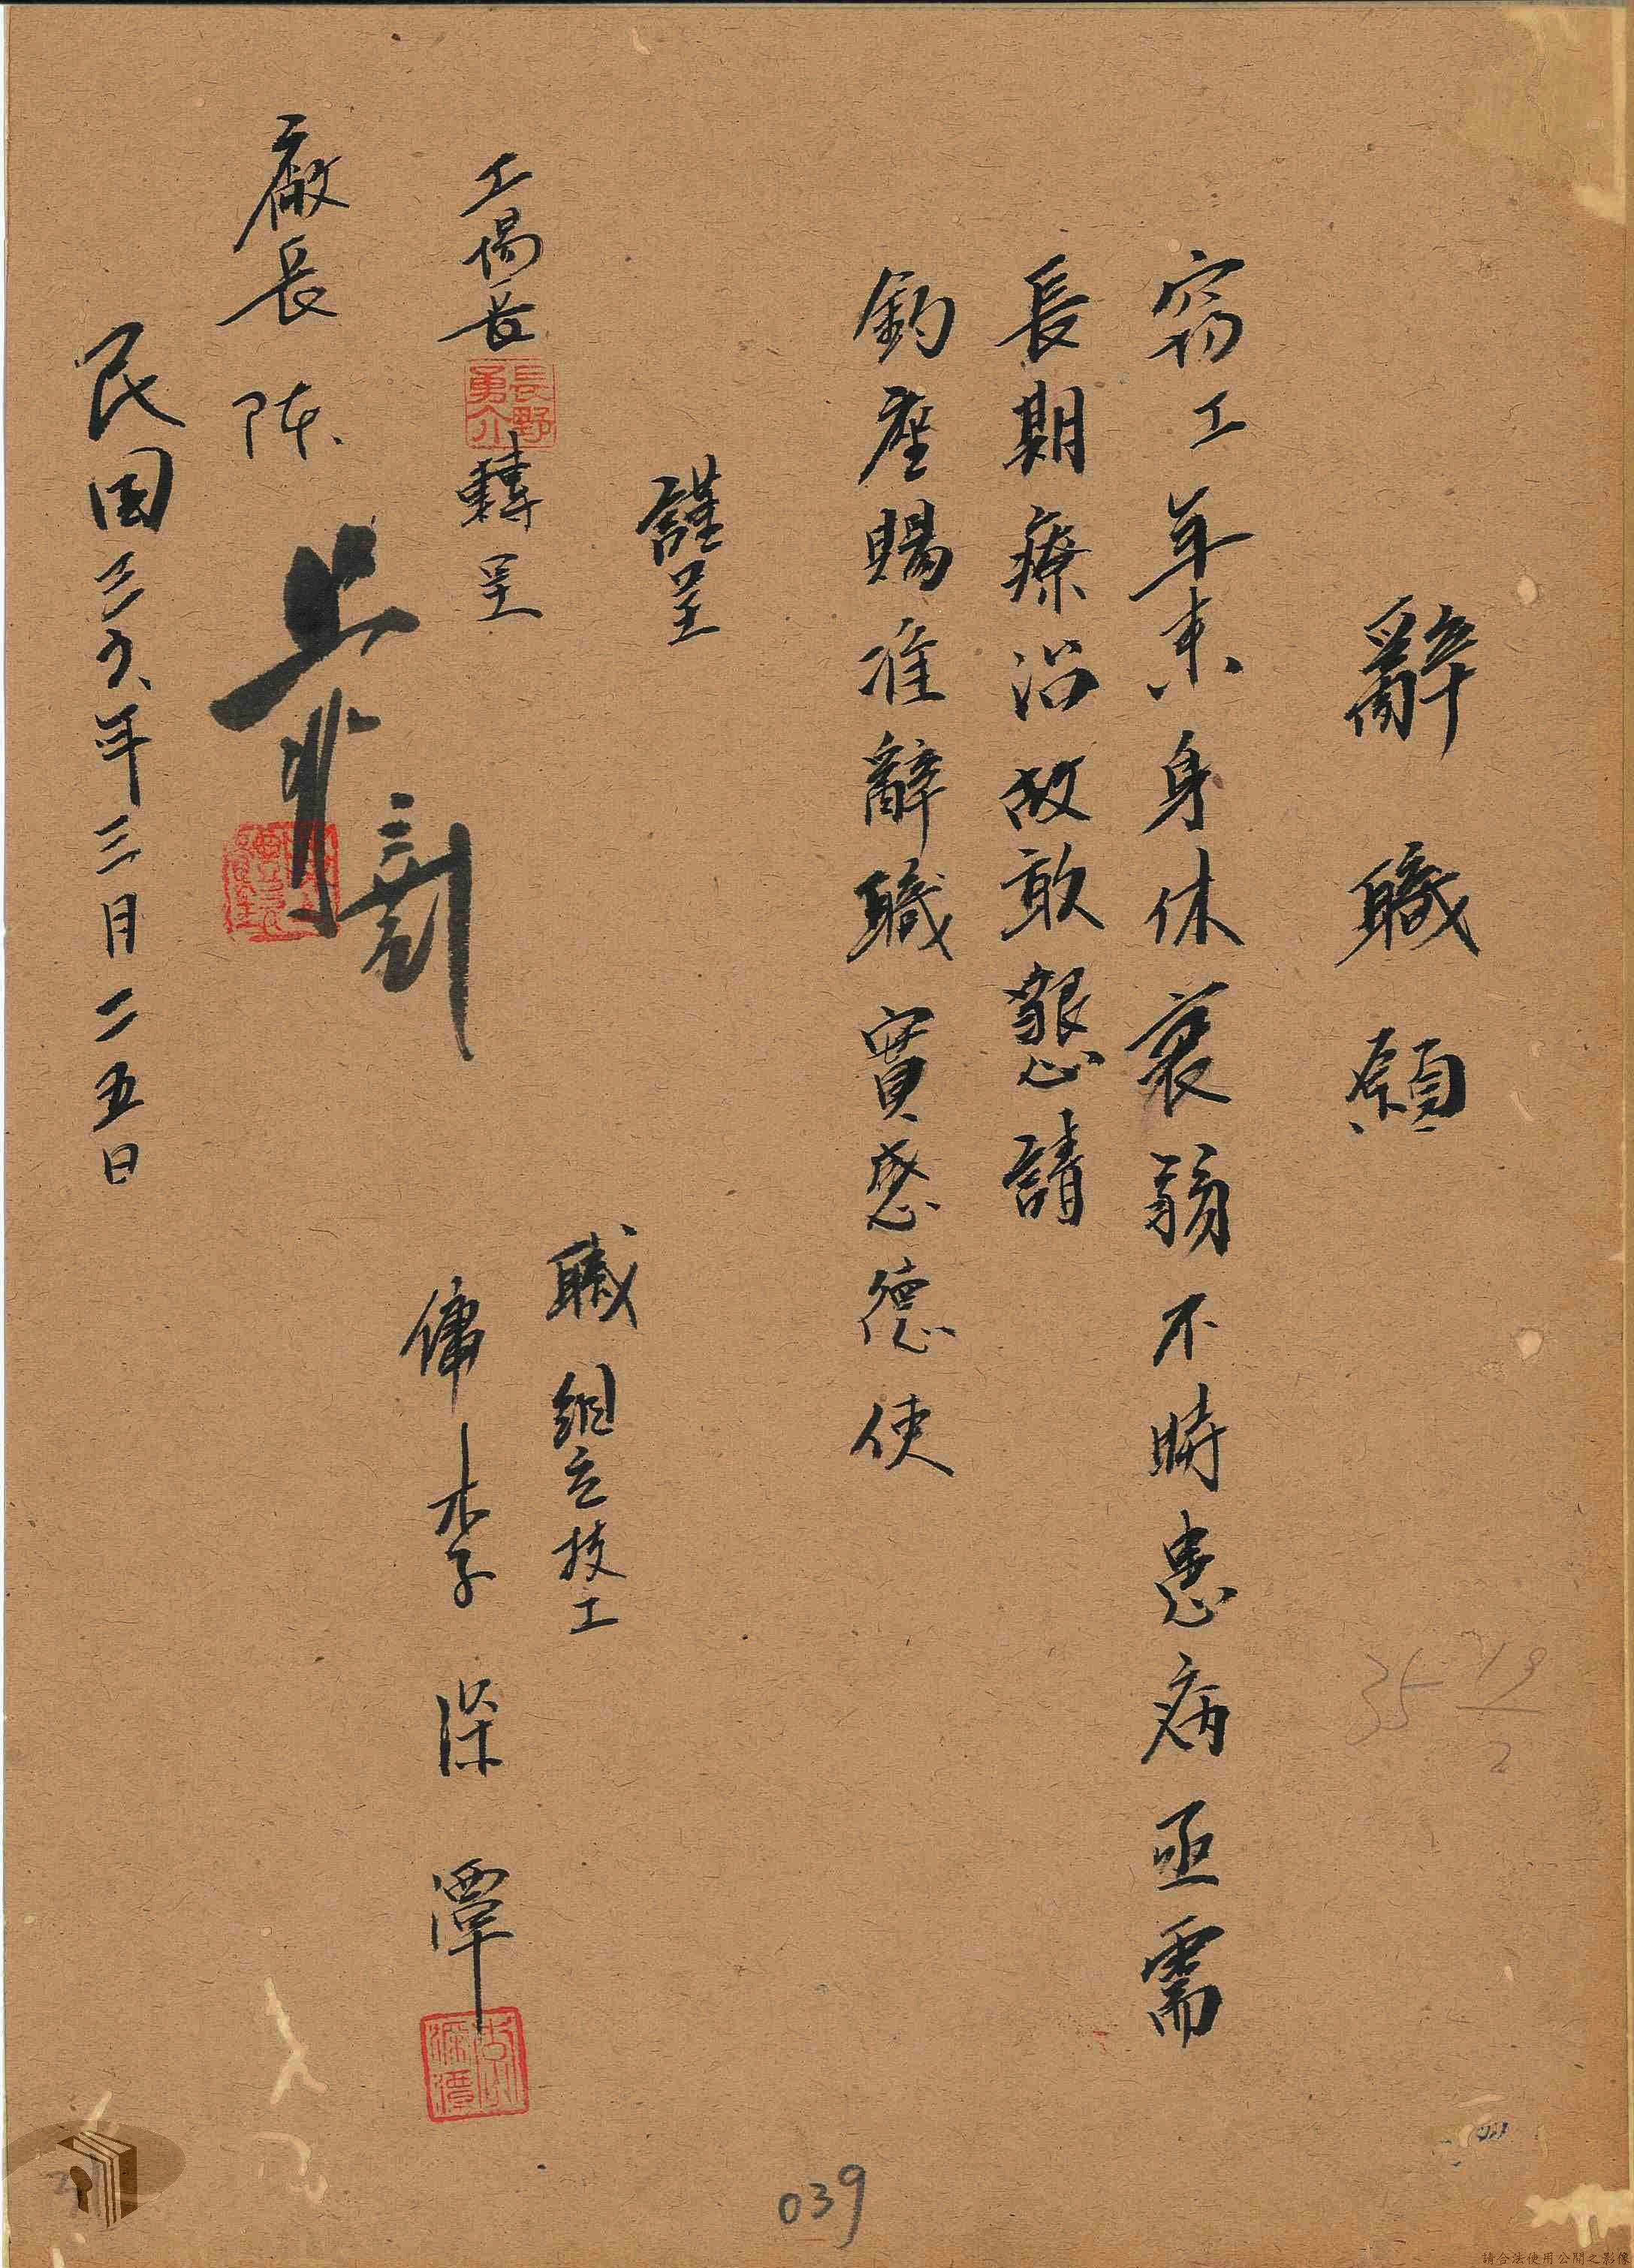 辭職願
竊工年來身体衰弱不時患病亟需
長期療治故敢懇請
鈞座賜准辭職實感德便
謹呈
工場長
長野勇介
轉呈
廠長 陳
職 組立技工
傭 李深潭
李深潭
民国三六年三月二五日
35 19/2
039
請合法使用公開之影像